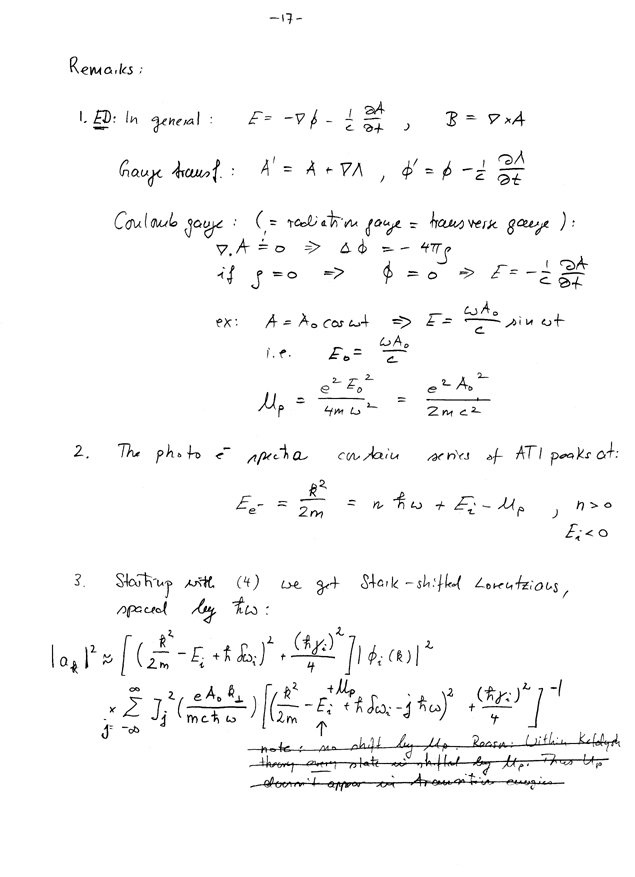 -17-
Remarks:
1. ED: In general: E = -∇φ - 1/c ∂A/∂t , B = ∇×A
Gauge transf.: A' = A + ∇Λ , φ' = φ - 1/c ∂Λ/∂t
Coulomb gauge: (= radiation gauge = transverse gauge):
∇.A != 0 ⇒ Δφ = -4πρ
if ρ = 0 ⇒ φ = 0 ⇒ E = -1/c ∂A/∂t
ex: A = A₀ cos ωt ⇒ E = ωA₀/c sin ωt
i.e. E₀ = ωA₀/c
Up = e²E₀²/4mω² = e²A₀²/2mc²
2. The photo e⁻ spectra contain series of ATI peaks at:
E_e⁻ = k²/2m = nħω + E_i - Up , n>0
E_i<0
3. Starting with (4) we get Stark-shifted Lorentzians,
spaced by ħω:
|a_k|² ≈ [(k²/2m - E_i + ħδω_i)² + (ħγ_i)²/4] |φ_i(k)|²
× ∑_{j=-∞}^{∞} J_j²(eA₀k⊥/mcħω) [(k²/2m - E_i +Up + ħδω_i - jħω)² + (ħγ_i)²/4]⁻¹
↑
note: no shift by Up. Reason: Within Keldysh
theory every state is shifted by Up. Thus Up
doesn't appear in transition energies